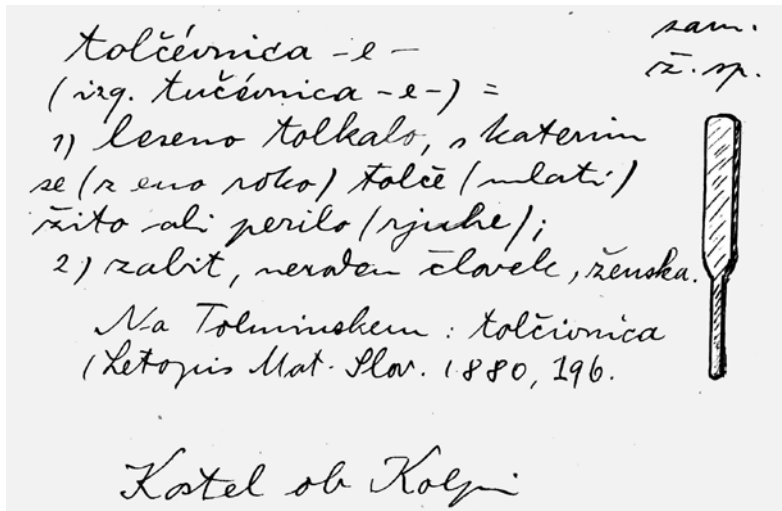 tolčévnica -e -
sam.
ž. sp.
(izg. tučévnica -e-) =
1) leseno tolkalo, s katerim
se (z eno roko) tolče (mlati)
žito ali perilo (rjuhe);
2) zabit, neroden človek, ženska.
Na Tolminskem: tolčivnica
(Letopis Mat. Slov. 1880, 196.
Kostel ob Kolpi